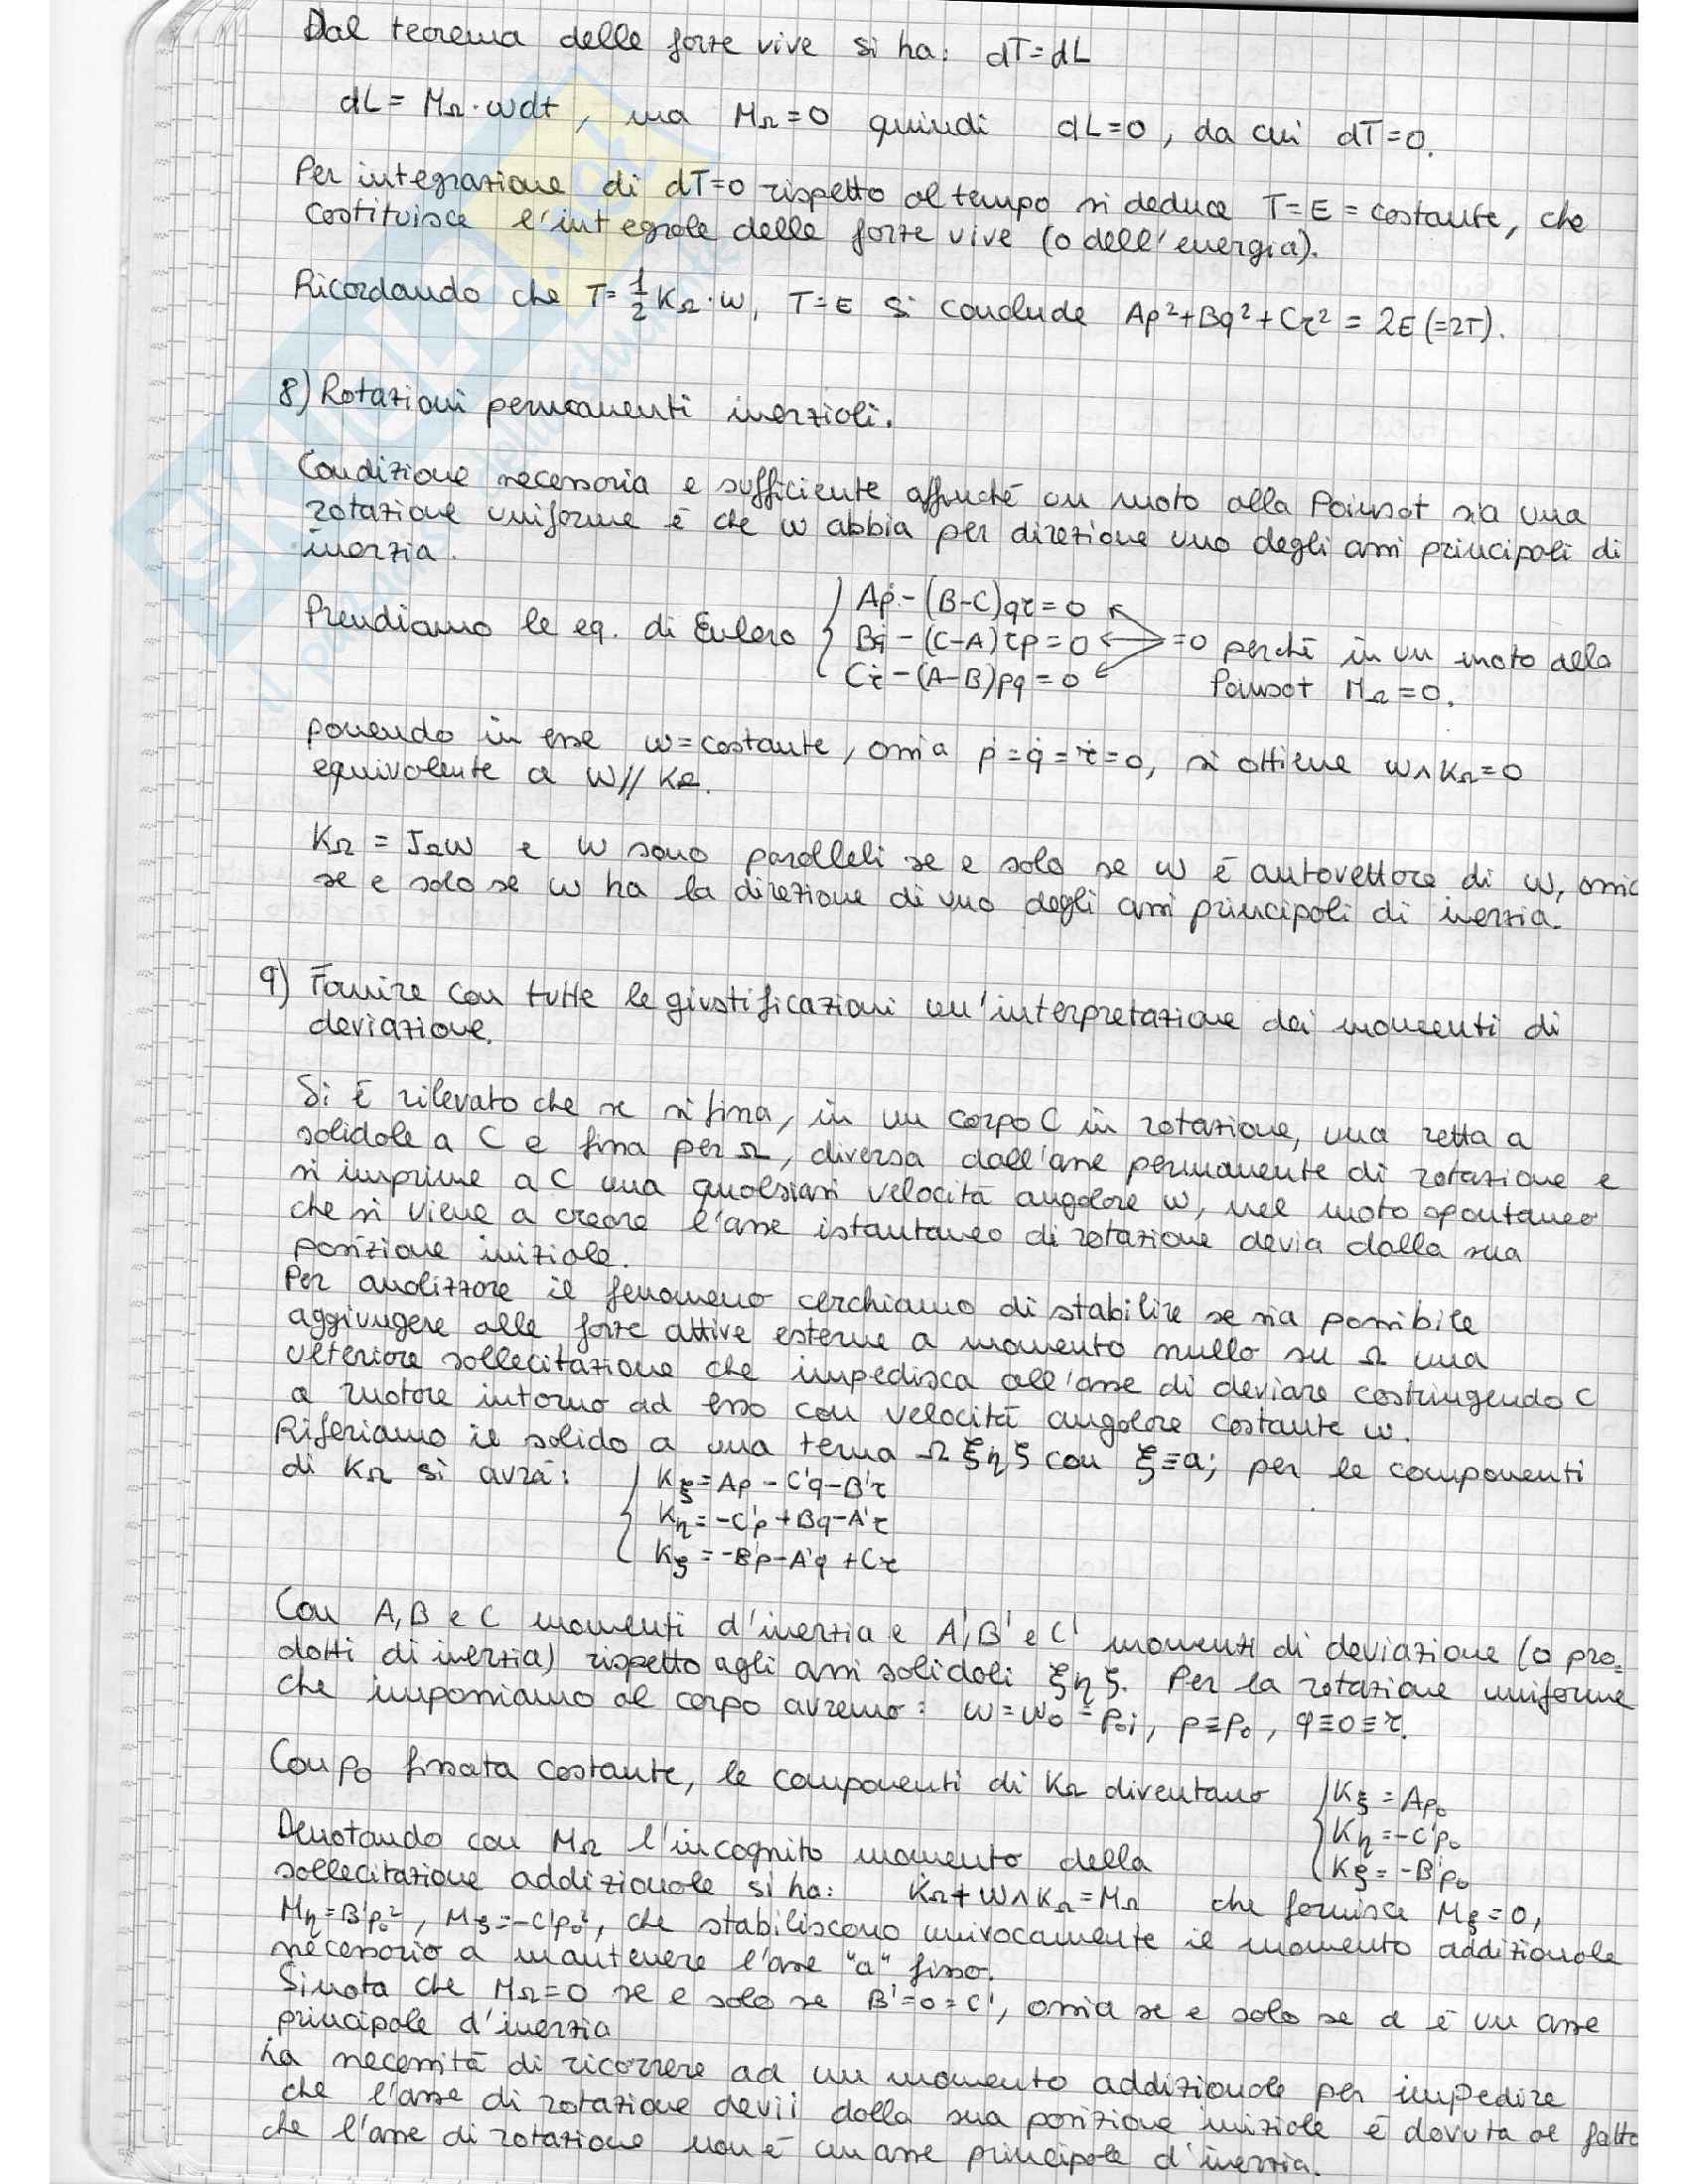 Dal teorema delle forze vive si ha: dT=dL
dL = MΩ·ωdt, ma MΩ=0 quindi dL=0, da cui dT=0.
Per integrazione di dT=0 rispetto al tempo si deduce T=E=costante, che
costituisce l'integrale delle forze vive (o dell'energia).
Ricordando che T=1/2 KΩ·ω, T=E si conclude Ap²+Bq²+Cr² = 2E(=2T).
8) Rotazioni permanenti inerziali.
Condizione necessaria e sufficiente affinché un moto alla Poinsot sia una
rotazione uniforme è che ω abbia per direzione uno degli assi principali di
inerzia.
Prendiamo le eq. di Eulero { Aṗ - (B-C)qr = 0
Bq̇ - (C-A)rp = 0 =0 perché in un moto alla
Cṙ - (A-B)pq = 0 Poinsot MΩ=0.
ponendo in esse ω=costante, ossia ṗ=q̇=ṙ=0, si ottiene ω∧KΩ=0
equivalente a ω//KΩ.
KΩ = JΩω e ω sono paralleli se e solo se ω è autovettore di ω, ossia
se e solo se ω ha la direzione di uno degli assi principali di inerzia.
9) Fornire con tutte le giustificazioni un'interpretazione dei momenti di
deviazione.
Si è rilevato che se si fissa, in un corpo C in rotazione, una retta a
solidale a C e fissa per Ω, diversa dall'asse permanente di rotazione e
si imprime a C una qualsiasi velocità angolare ω, nel moto spontaneo
che si viene a creare l'asse istantaneo di rotazione devia dalla sua
posizione iniziale.
Per analizzare il fenomeno cerchiamo di stabilire se sia possibile
aggiungere alle forze attive esterne a momento nullo su Ω una
ulteriore sollecitazione che impedisca all'asse di deviare costringendo C
a ruotare intorno ad esso con velocità angolare costante ω.
Riferiamo il solido a una terna Ωξηζ con ξ≡a; per le componenti
di KΩ si avrà: { Kξ = Ap - C'q - B'r
Kη = -C'p + Bq - A'r
Kζ = -B'p - A'q + Cr
Con A,B e C momenti d'inerzia e A',B' e C' momenti di deviazione (o pro=
dotti di inerzia) rispetto agli assi solidali ξηζ. Per la rotazione uniforme
che imponiamo al corpo avremo: ω=ω₀=p₀i, p≡p₀, q≡0≡r.
Con p₀ fissata costante, le componenti di KΩ diventano { Kξ = Ap₀
Kη = -C'p₀
Kζ = -B'p₀
Denotando con MΩ l'incognito momento della
sollecitazione addizionale si ha: K̇Ω + ω∧KΩ = MΩ che fornisce Mξ=0,
Mη=B'p₀², Mζ=-C'p₀², che stabiliscono univocamente il momento addizionale
necessario a mantenere l'asse "a" fisso.
Si nota che MΩ=0 se e solo se B'=0=C', ossia se e solo se a è un asse
principale d'inerzia
La necessità di ricorrere ad un momento addizionale per impedire
che l'asse di rotazione devii dalla sua posizione iniziale è dovuta al fatto
che l'asse di rotazione non è un asse principale d'inerzia.